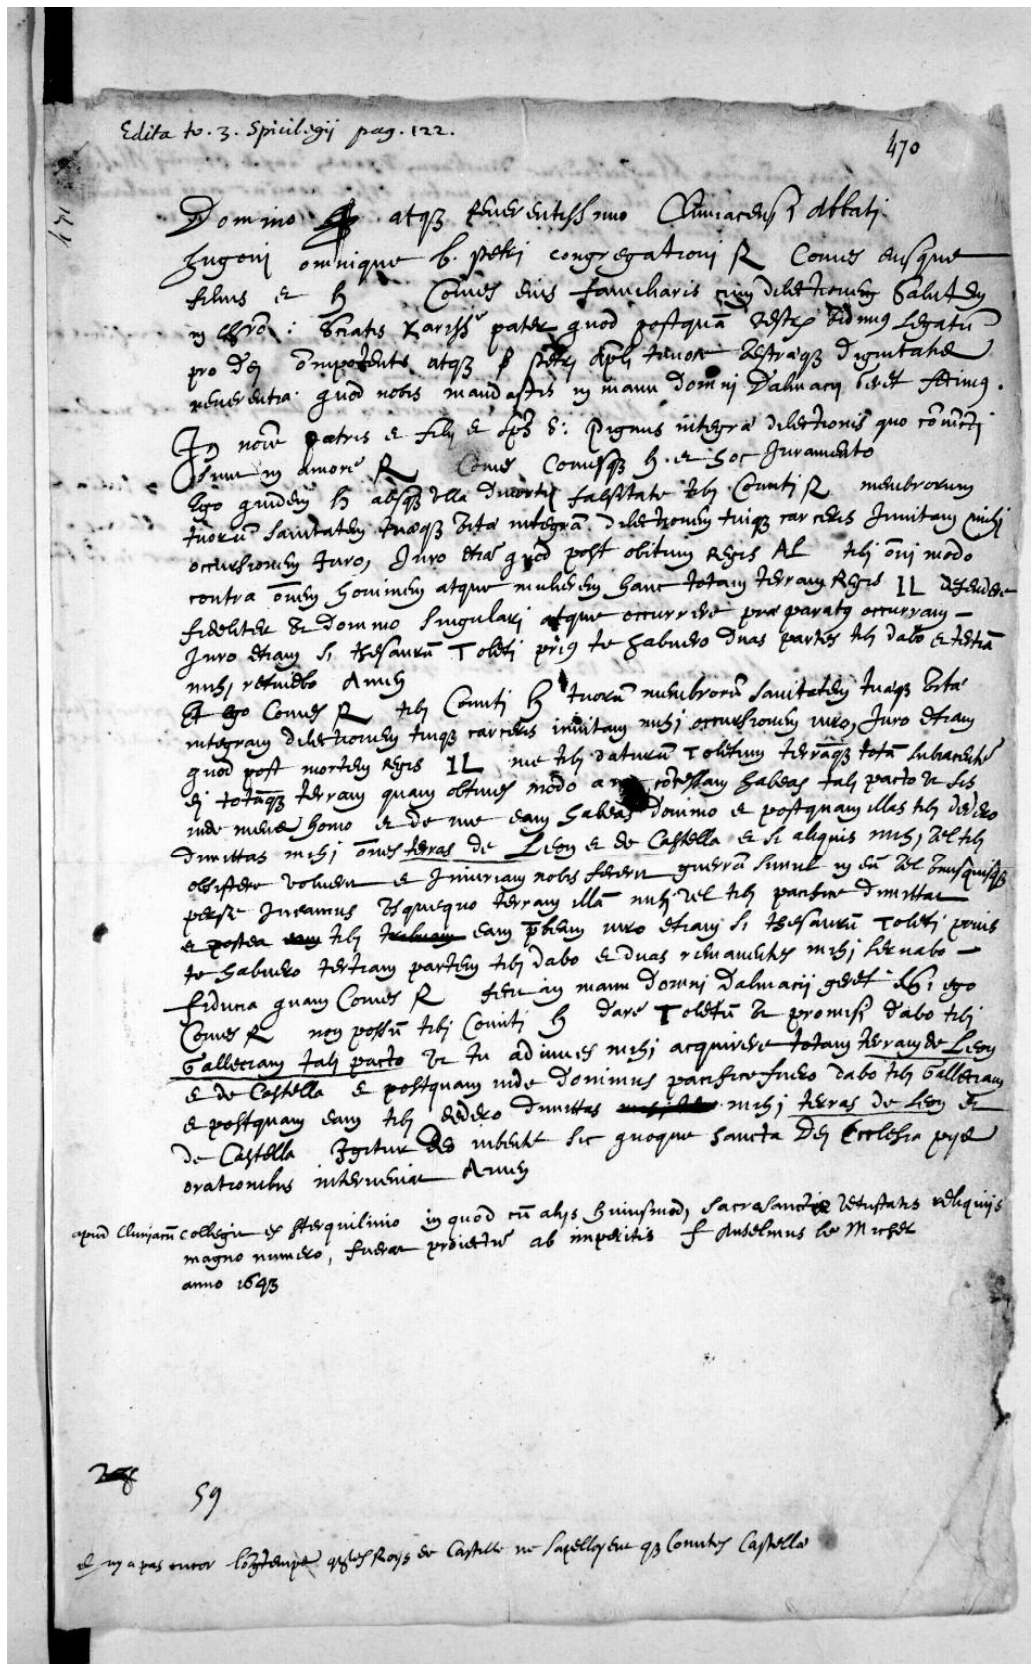 Edita to. 3. Spicilegij pag. 122.
470
Domino atqꝫ Reuerentissimo Cluniacensi Abbati
hugoni omnique b. Petri congregationi R Comes eiusque
filius et h Comes eius familiaris cum dilectionem Salutem
in Chrō: Sciatis karissē pater quod postquā vestrū vidimus legatū
pro Dei omnipotentis atqꝫ Petri Apli timore vestraqꝫ dignitatis
reuerentia quod nobis mandastis in manu Domni Dalmacij Geret fecimus.
In noīe patris et filij et Sps S: Pignus integrae dilectionis quo coniūcti
Sunt in amorē R Comes Comesqꝫ h. et hoc Juramento
Ego quidem h absqꝫ vlla diuortij falsitate tibi Comiti R membrorum
tuorū sanitatem tuaeqꝫ vitae integrā dilectionem tuiqꝫ carceris Inuitam mihi
occursionem Juro, Juro etiā quod post obitum Regis AL tibi omni modo
contra omnem hominem atque mulierem hanc totam terram Regis IL defendere
fideliter vt domino singulari atque occurrere praeparatus occurram
Juro etiam si thesaurū Toleti prius te habuero duas partes tibi dabo et tertiā
mihi retinebo Amen
Et Ego Comes R tibi Comiti h tuorū membrorū sanitatem tuaeqꝫ vitae
integram dilectionem tuiqꝫ carceris inuitam mihi occursionem iuro, Juro etiam
quod post mortem Regis IL me tibi daturū Toletum terrāqꝫ totā subiacentē
ei totāqꝫ terram quam obtines modo a me concessam habeas tali pacto vt sis
inde meus homo et de me eam habeas domino et postquam illas tibi dedero
dimittas mihi omnes terras de Leon et de Castella et si aliquis mihi vel tibi
obsistere voluerit et Iniuriam nobis fecerit guerrā simul in eū vel vnusquisqꝫ
per se Ineamus vsquequo terram illā mihi vel tibi pacifice dimittat
et postea eam tibi tribuam eam p̄beam iuro etiam si thesaurū Toleti prius
te habuero tertiam partem tibi dabo et duas remanentes mihi seruabo
Fiducia quam Comes R feci in manu Domni Dalmacij geret Si ego
Comes R non possū tibi Comiti h dare Toletū vt promisi dabo tibi
Galleciam tali pacto vt tu adiuues mihi acquirere totam terram de Leon
et de Castella et postquam inde dominus pacifice fuero dabo tibi Galleciam
et postquam eam tibi dedero dimittas mihi terras de Leon et
de Castella Igitur deo iubente sic quoque sancta Dei Ecclesia piae
orationibus interueniat Amen
apud Cluniacū collegit ex sterquilinio in quod cū alijs huiusmodi sacrosanctae vetustatis reliquijs
magno numero, fuerat proiectus ab imperitis f Anselmus le Michel
anno 1643
59
et ny a pas encor longtemps qꝫ les Roys de Castille ne sapelloyent qꝫ Comites Castellae